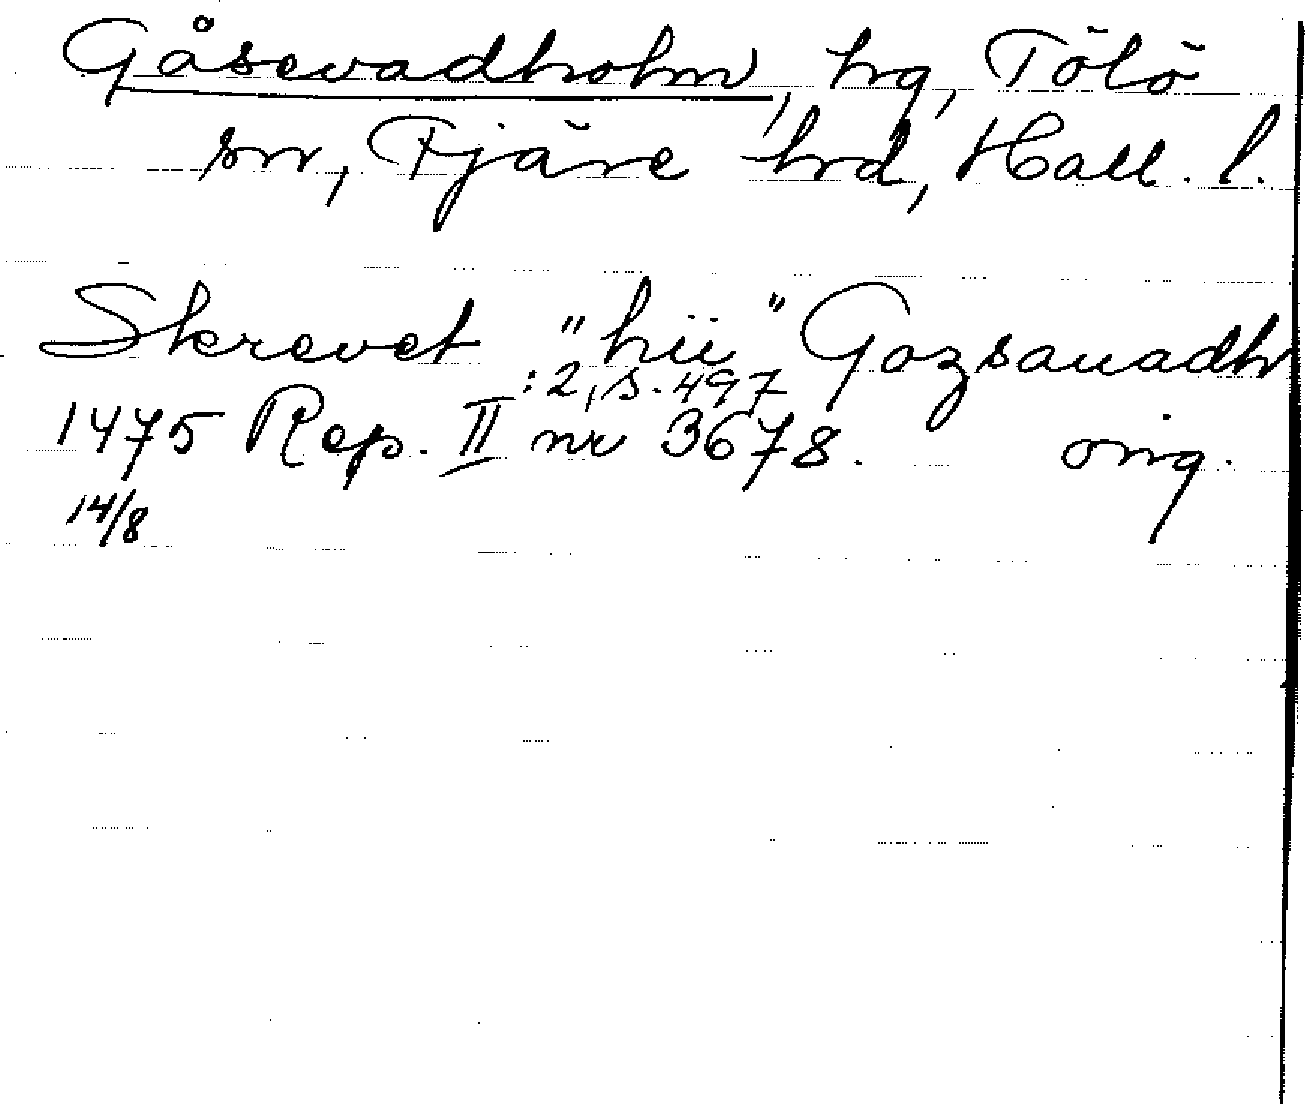 Gåsevadholm, hg, Tölö
sn, Fjäre hd, Hall. l.
Skrevet "hii" Gozsauadh
:2, s. 497
1475 Rep. II nr 3678. orig.
14/8